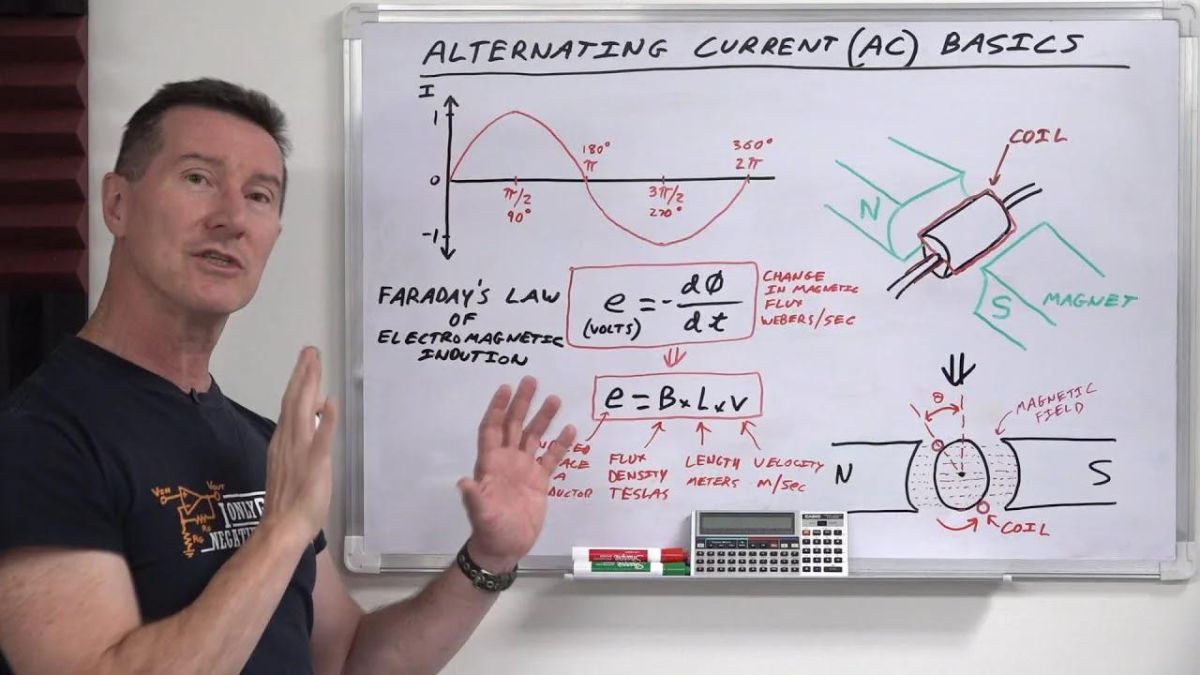 ALTERNATING CURRENT (AC) BASICS
I
1
0
-1
π/2
90°
180°
π
3π/2
270°
360°
2π
COIL
N
S
MAGNET
FARADAY'S LAW
OF
ELECTROMAGNETIC
INDUTION
e = - dØ/dt
(VOLTS)
CHANGE
IN MAGNETIC
FLUX
WEBERS/SEC
e = B x L x v
FLUX
DENSITY
TESLAS
LENGTH
METERS
VELOCITY
m/sec
θ
MAGNETIC
FIELD
N
S
COIL
VIN
VOUT
RF
RG
I ONLY
CASIO